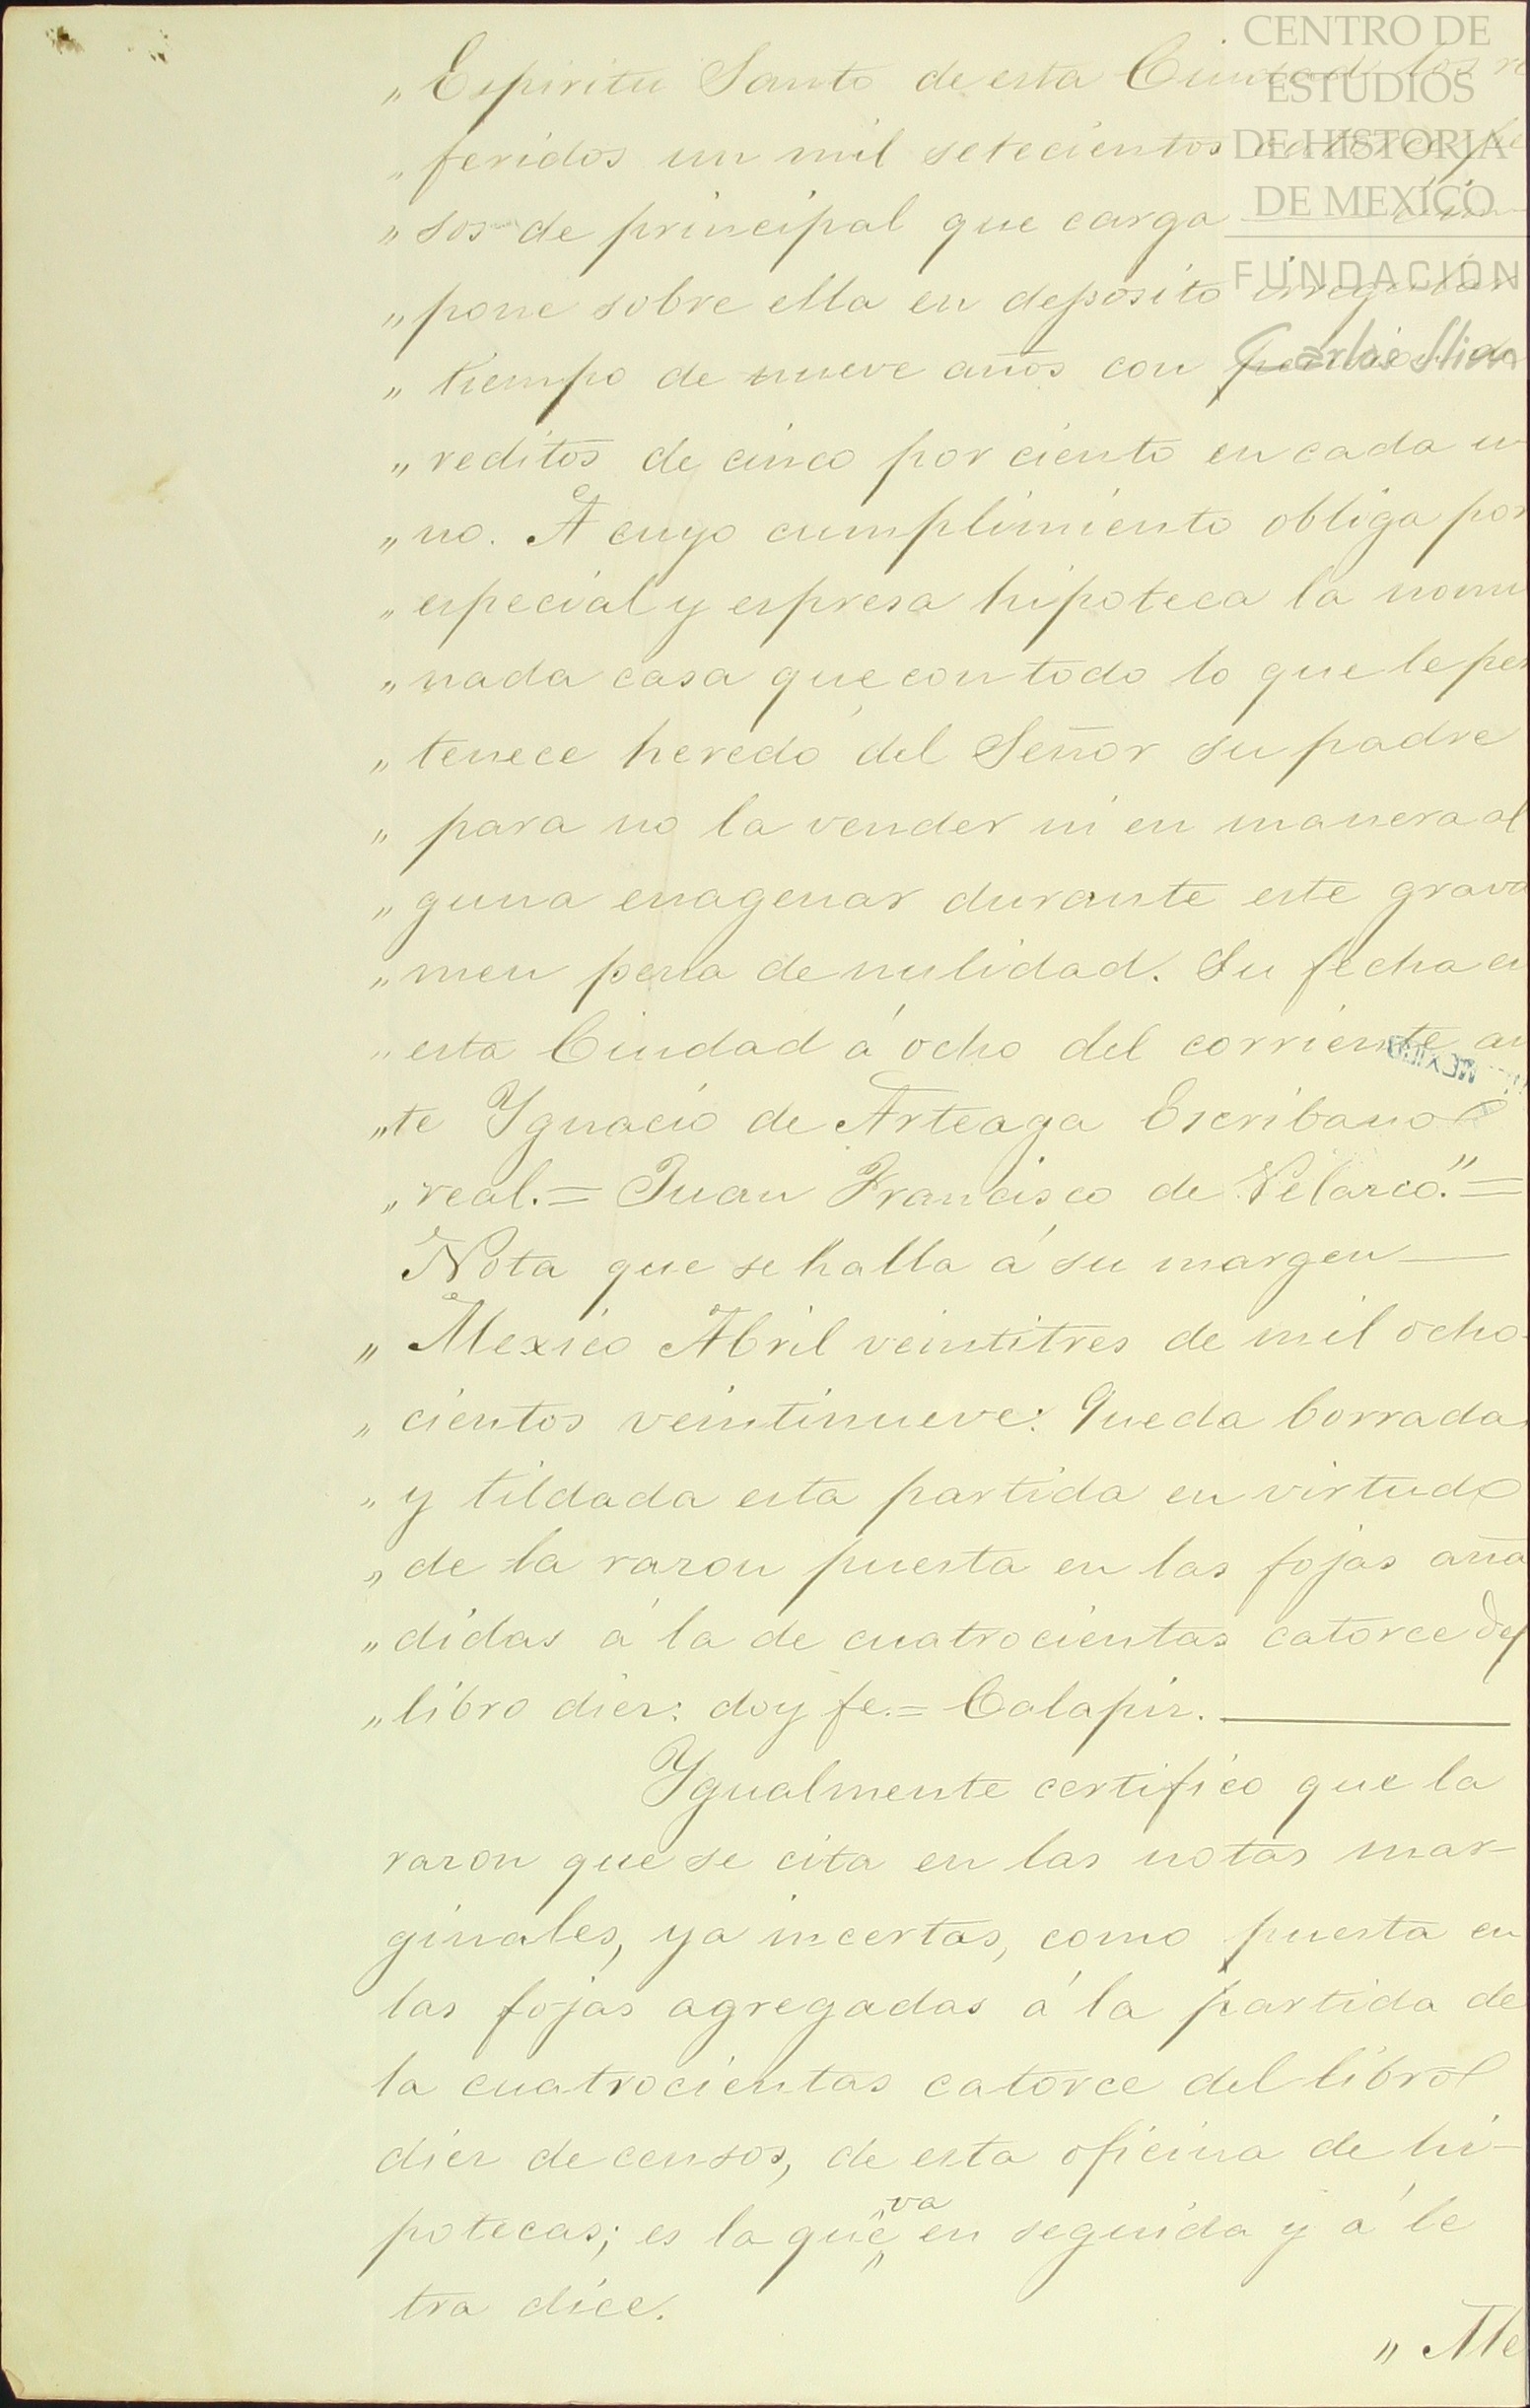 „ Espiritu Santo de esta Ciudad los re
„ feridos un mil setecientos catorce pe
„ sos de principal que carga
„ pone sobre ella en deposito irregular
„ tiempo de nueve años con
„ reditos de cinco por ciento en cada u
„ no. A cuyo cumplimiento obliga por
„ especial y espresa hipoteca la nomi
„ nada casa que con todo lo que le per
„ tenece heredó del Señor su padre
„ para no la vender ni en manera al
„ guna enagenar durante este grava
„ men pena de nulidad. Su fecha en
„ esta Ciudad á ocho del corriente an
„ te Ygnacio de Arteaga Escribano
„ real.= Juan Francisco de Velasco."=
Nota que se halla á su margen —
„ Mexico Abril veintitres de mil ocho-
„ cientos veintinueve: Queda borrada
„ y tildada esta partida en virtud
„ de la razon puesta en las fojas aña
„ didas á la de cuatrocientas catorce del
„ libro diez: doy fe.= Calapiz. —
Ygualmente certifico que la
razon que se cita en las notas mar-
ginales, ya incertas, como puesta en
las fojas agregadas á la partida de
la cuatrocientas catorce del libro
diez de censos, de esta oficina de hi-
potecas; es la que „va„ en seguida y á le
tra dice.
„ Me
CENTRO DE
ESTUDIOS
DE HISTORIA
DE MEXICO
FUNDACIÓN
Carlos Slim
MEXICO